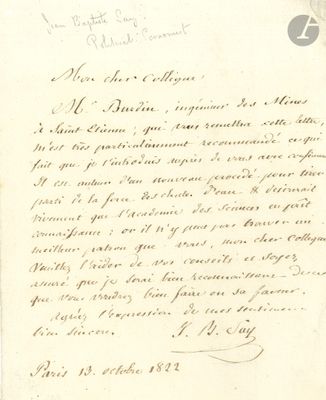 Jean Baptiste Say.
Political Economist
A
Mon cher Collègue
Mr Burdin, ingénieur des Mines
de Saint Etienne, qui vous remettra cette lettre,
m'est très particulièrement recommandé ce qui
fait que je l'introduis auprès de vous avec confiance
Il est auteur d'un nouveau procédé pour tirer
parti de la force des chutes d'eau & désirerait
vivement que l'académie des Sciences en prît
connaissance ; or il n'y peut pas trouver un
meilleur patron que vous, mon cher Collègue
Veuillez l'aider de vos conseils et soyez
assuré que je serai bien reconnaissant de ce
que vous voudrez bien faire en sa faveur.
Agréez l'expression de mes sentimens
bien sincères.
J. B. Say
Paris 13. octobre 1822